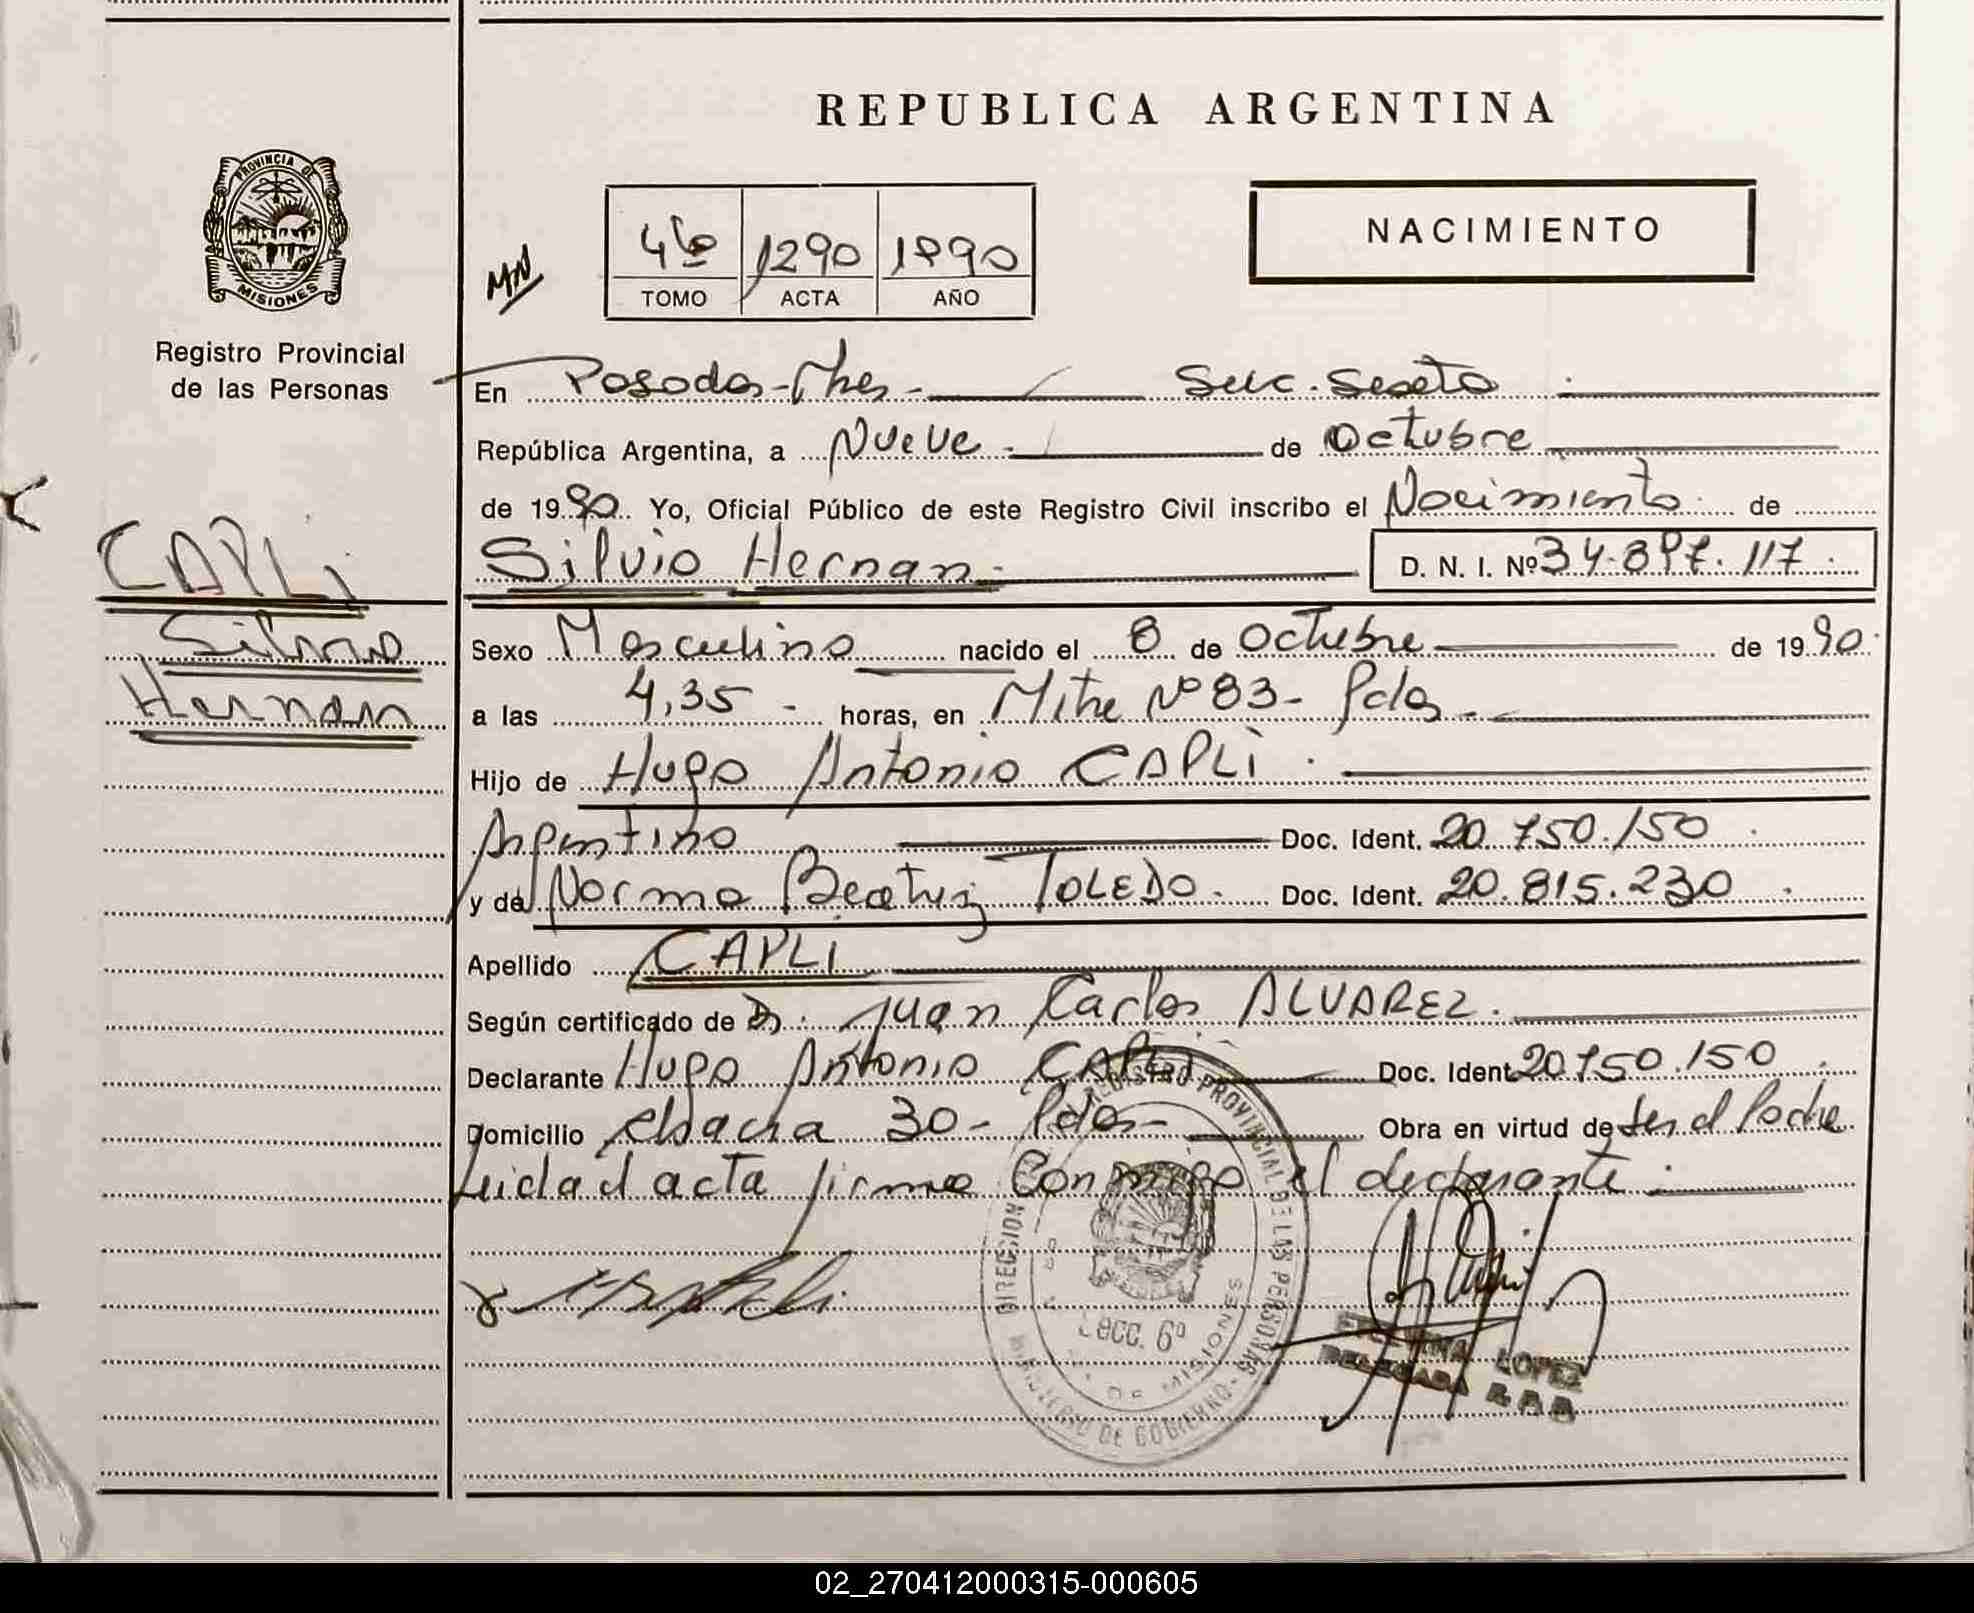 REPUBLICA ARGENTINA
PROVINCIA DE
MISIONES
Registro Provincial
de las Personas
MN
4to 1290 1990
TOMO ACTA AÑO
NACIMIENTO
En Posadas - Mnes - Secc. Sexta
República Argentina, a Nueve de Octubre
de 1990 Yo, Oficial Público de este Registro Civil inscribo el Nacimiento de
Silvio Hernan D. N. I. Nº 34.897.117
CAPLI
Silvio
Hernan
Sexo Masculino nacido el 8 de Octubre de 1990
a las 4,35 - horas, en Mitre Nº 83 - Pdas
Hijo de Hugo Antonio CAPLI
Argentino Doc. Ident. 20.750.150
y de Norma Beatriz TOLEDO. Doc. Ident. 20.815.230
Apellido CAPLI
Según certificado de Dr. Juan Carlos ALVAREZ.
Declarante Hugo Antonio CAPLI Doc. Ident. 20750.150
Domicilio chacra 30 - Pdas - Obra en virtud de ser el Padre
Leida el acta firma Conmigo el declarante
DIRECCION REGISTRO PROVINCIAL DE LAS PERSONAS
MINISTERIO DE GOBIERNO
Secc. 6º
DE MISIONES
LOPEZ
DELEGADA
02_270412000315-000605